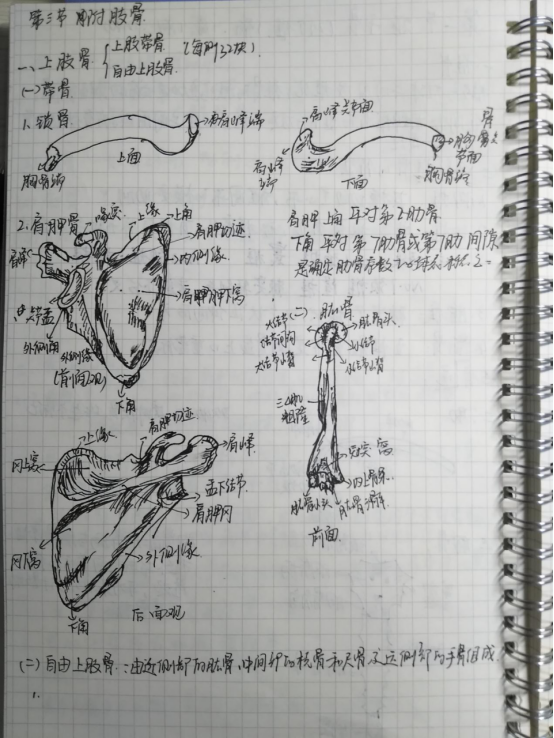 第三节 附肢骨
一、上肢骨 { 上肢带骨 (每侧32块)
自由上肢骨
(一)带骨
1. 锁骨
肩峰端
上面
胸骨端
肩峰关节面
肩峰端
下面
胸骨关节面
胸骨端
2. 肩胛骨
喙突
上缘
上角
肩胛切迹
内侧缘
肩峰
肩胛下窝
关节盂
外侧角
外侧缘
(前面观)
下角
肩胛上角 平对第2肋骨
下角 平对 第7肋骨或第7肋间隙
是确定肋骨序数的体表标志之一
(二)肱骨
大结节
结节间沟
大结节嵴
肱骨头
小结节
小结节嵴
三角肌粗隆
冠突窝
内上髁
肱骨小头
肱骨滑车
前面
上缘
肩胛切迹
肩峰
冈上窝
盂下结节
肩胛冈
冈下窝
外侧缘
下角
后面观
(二)自由上肢骨:由近侧部的肱骨、中间部的桡骨和尺骨及远侧部的手骨组成
1.